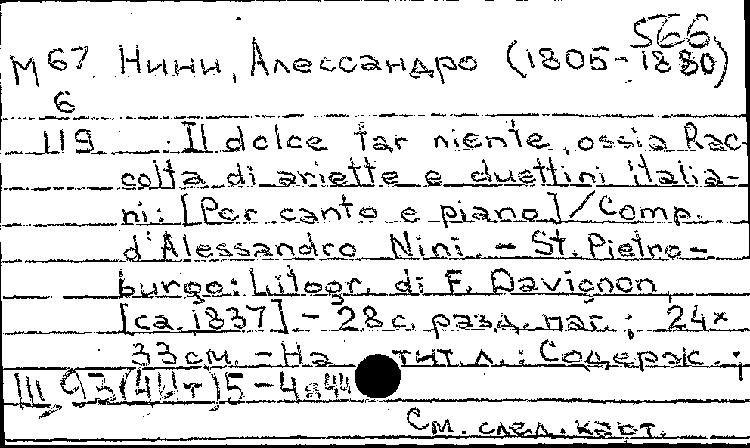 566
М 67 Нини, Алессандро (1805-1880)
6
119 Il dolce far niente, ossia Rac-
colta di ariette e duettini italia-
ni: [Per canto e piano] / Comp.
d'Alessandro Nini. - St. Pietro-
burgo: Litogr. di F. Davignon,
[ca. 1837]. - 28 с. разд. паг.; 24×
33 см. - На тит. л.: Содерж.;
III 93 (4Ит) 5-4
См. след. карт.